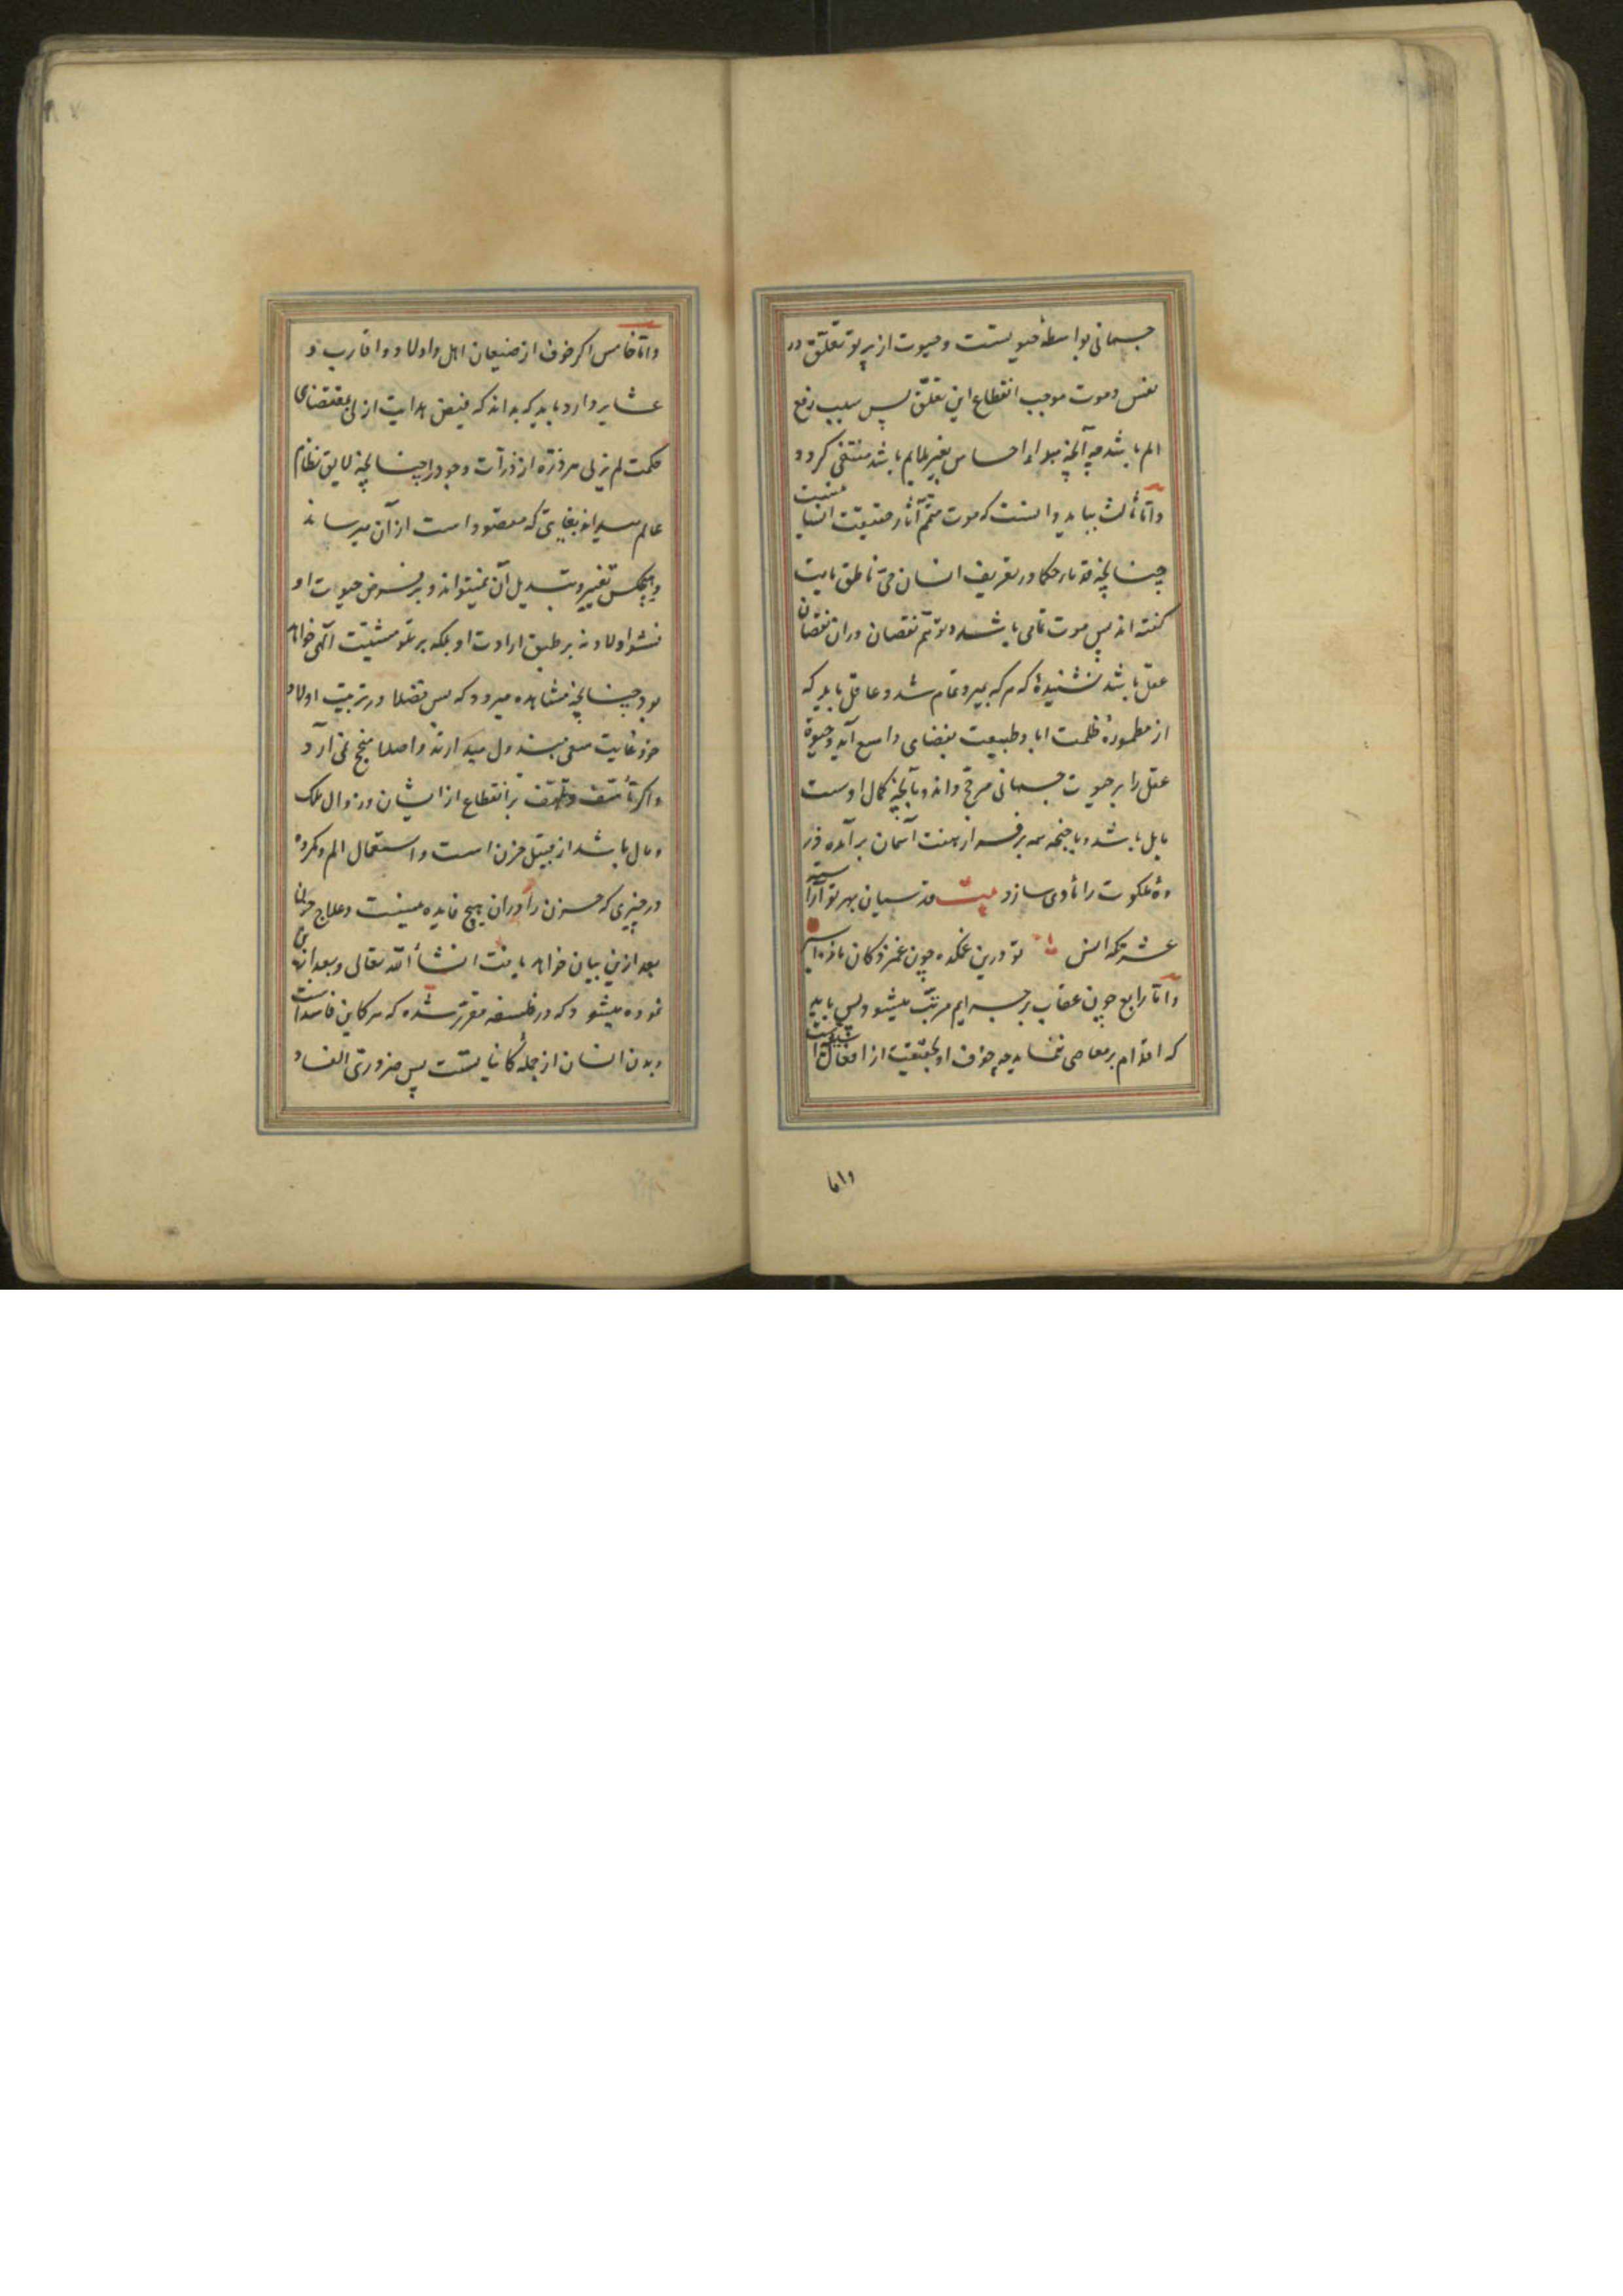 جسمانی بواسطهٔ حیوتست و حیوت از پرتو تعلّق در
نفس و موت موجب انقطاع این تعلّق پس سبب رفع
الم باشد چه آنچه مبداء احساس بغیر ملایم باشد منتفی کردد
و امّا ثالث بباید دانست که موت متمّم آثار حقیقت انسانیست
چنانچه قدمای حکما در تعریف انسان حیّ ناطق مایت
کفته اند پس موت تمامی باشد و توهّم نقصان دران نقصان
عقل باشد نشنیدهٔ که هر که بمیرد تمام شد و عاقل باید که
از مطمورهٔ ظلمت اباد طبیعت بفضای واسع آید و حیوة
عقل را بر حیوت جسمانی مرجّح داند و بآنچه کمال اوست
مایل باشد و با جنحه بر فراز هفت آسمان بر آمده ذر
وهٔ ملکوت را مأوی سازد بیت قدسیان بهر تو آراسته
عشرتکه انس تو درین غمکده چون غمزدکان مانده اسیر
و امّا رابع چون عقاب بر جرایم مرتّب میشود پس باید
که اقدام بر معاصی ننماید چه خوف او بحقیقت از افعال
واما
و امّا خامس اکر خوف از ضیعان اهل و اولاد و اقارب و
عشایر دارد باید که بداند که فیض هدایت ازلی بمقتضای
حکمت لم یزلی هر ذرّه از ذرّات وجود را چنانچه لایق نظام
عالم میداند بغایتی که مقصود است از آن میرساند
و هیچکس تغییر و تبدیل آن نمیتواند و بر فرض حیوت او
نشو اولاد نه بر طبق ارادت او بلکه بر تلو مشیّت الهی خواهد
بود چنانچه مشاهده میرود که بس فضلا در تربیت اولاد
خود غایت سعی مبذول میدارند و اصلا منجح نمی آرد
و اکر تأسّف و تلهّف بر انقطاع از ایشان و زوال ملک
و مال باشد از قبیل حزن است و استعمال الم و مکروه
در چیزی که حزن را دران هیچ فایده نیست و علاج حزن
بعد ازین بیان خواهد یافت انشأ الله تعالی و بعد ازین
نموده میشود که در فلسفه مقرّر شده که هر کاین فاسد است
و بدن انسان از جملهٔ کایناتست پس ضروریّ الفساد